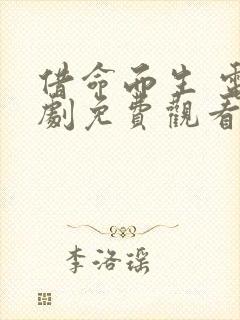 借命而生 電
劇免費觀看
李洛瑶